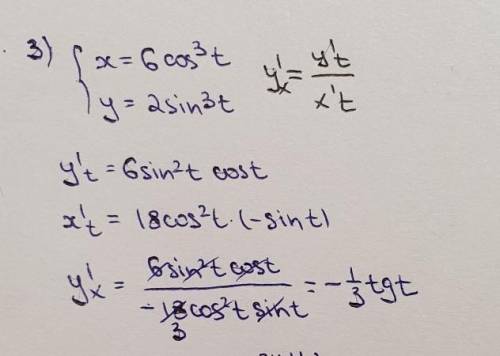 3) { x = 6cos³t
y = 2sin³t
y'ₓ = y't / x't
y't = 6sin²t cost
x't = 18cos²t·(-sint)
y'ₓ = 6sin²t cost / -18cos²t sint = -1/3 tgt
3